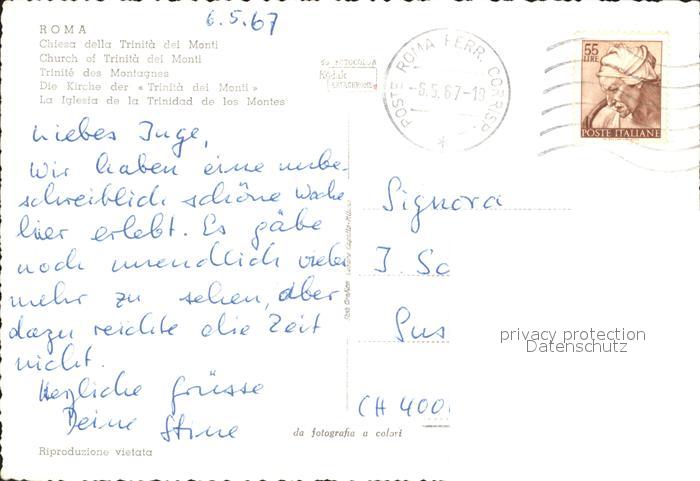 6.5.67
ROMA
Chiesa della Trinità dei Monti
Church of Trinità dei Monti
Trinité des Montagnes
Die Kirche der « Trinità dei Monti »
La Iglesia de la Trinidad de los Montes
Kodak
EKTACHROME
POSTE ROMA FERR. CORRISP.
-6.5.67-19
55
LIRE
POSTE ITALIANE
Liebes Inge,
Wir haben eine unbe-
schreiblich schöne Woche
hier erlebt. Es gäbe
noch unendlich vieles
mehr zu sehen, aber
dazu reichte die Zeit
nicht.
Herzliche Grüsse
Deine
Signora
I. Sc
Sus
(CH 400
privacy protection
Datenschutz
da fotografia a colori
Riproduzione vietata